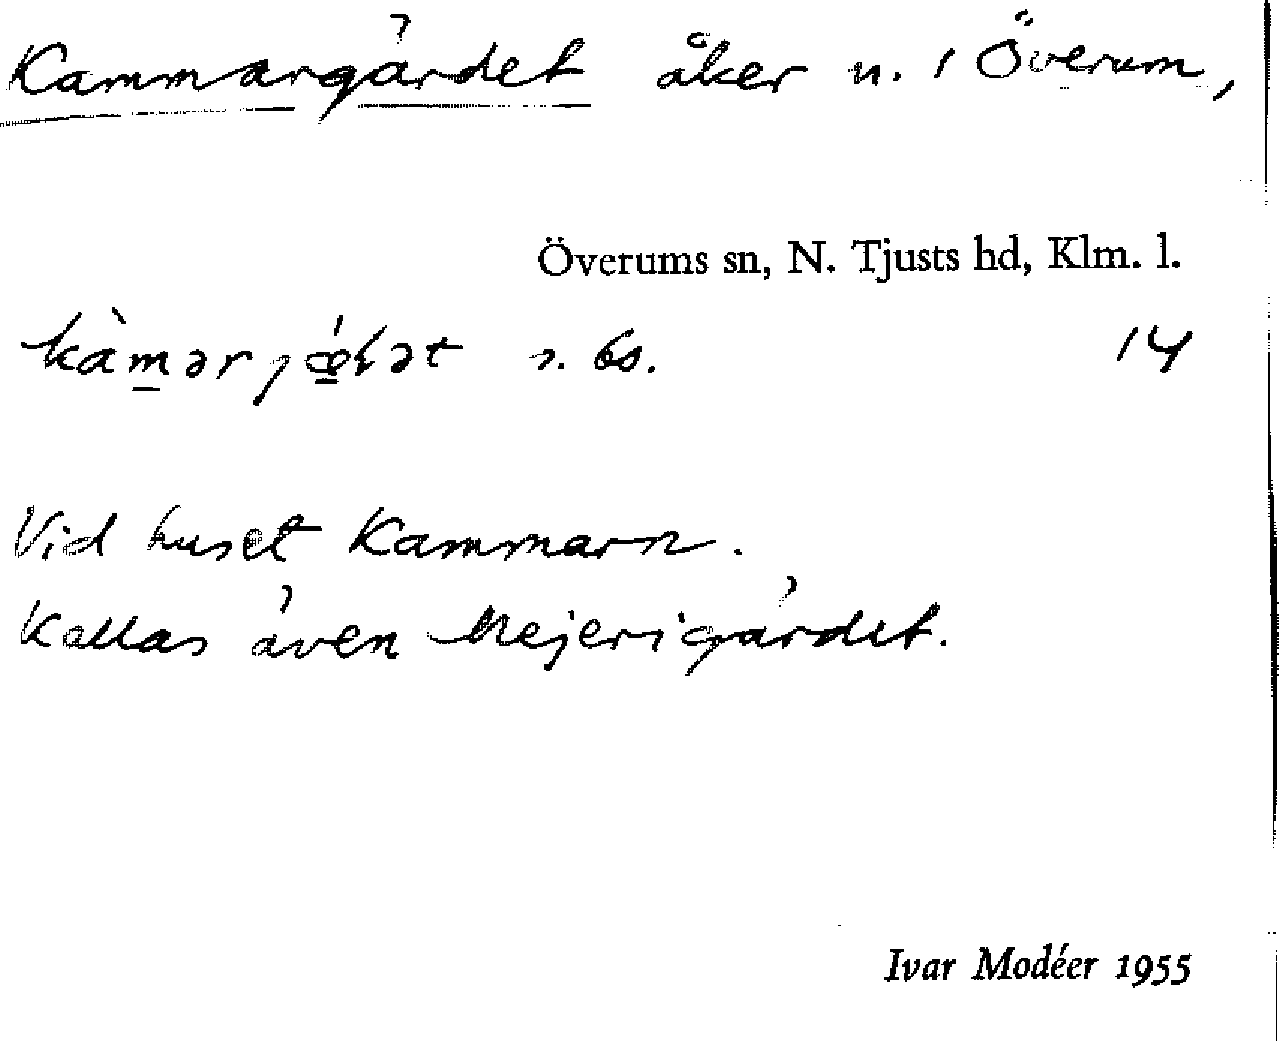 Kammargärdet åker n. i Överum,
Överums sn, N. Tjusts hd, Klm. l.
14
Vid huset Kammarn.
Kallas även Mejerigärdet.
Ivar Modéer 1955